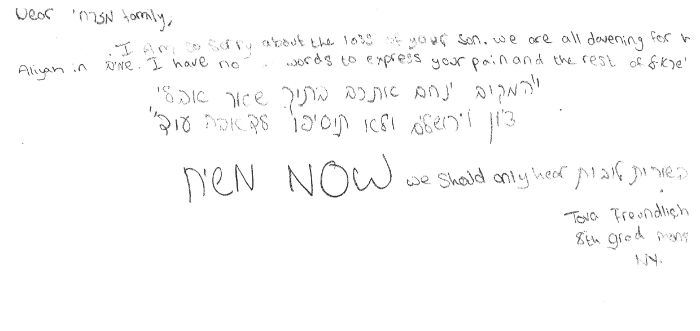 Dear מזרחי family,
I Am so sorry about the loss of your son. we are all davening for h
Aliyah in שמים. I have no words to express your pain and the rest of
"המקום ינחם אתכם בתוך שאר אבלי
ציון וירושלים ולא תוסיפו לדאבה עוד"
משיח NOW we should only hear בשורות טובות
Tova Freundlich
8th grad
NY.